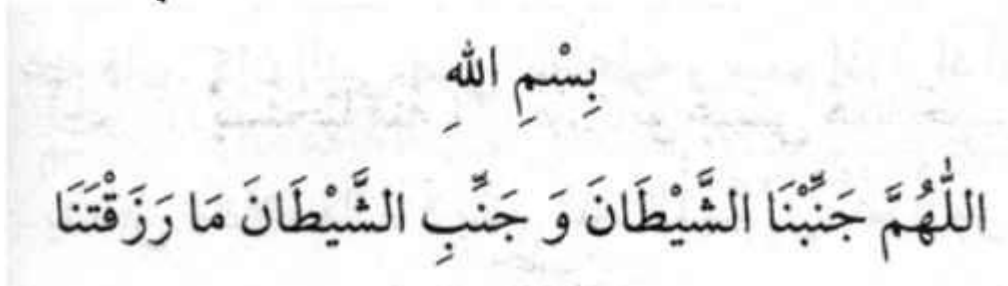 بِسْمِ اللهِ
اللّٰهُمَّ جَنِّبْنَا الشَّيْطَانَ وَ جَنِّبِ الشَّيْطَانَ مَا رَزَقْتَنَا